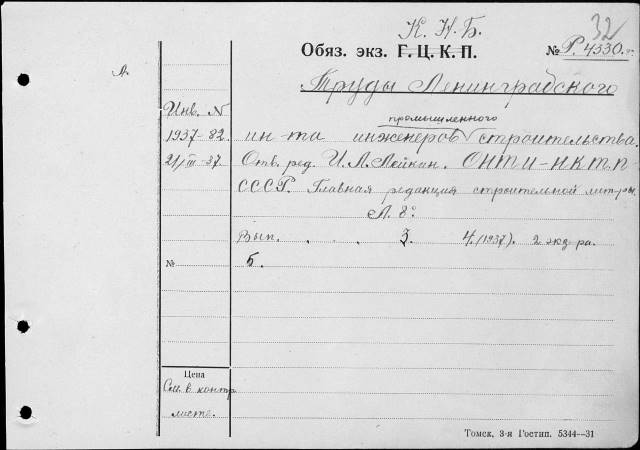 32
К. Н. Б.
Обяз. экз. Г. Ц. К. П. № Р. 4330.
Л. Труды Ленинградского
Инв. N промышленного
1937-82. ин-та инженеров строительства.
21/III-37 Отв. ред. И. Л. Лейкин. ОНТИ-НКТП
СССР. Главная редакция строительной лит-ры
Л. 8°
Вып. . . . . 3. 4. (1937). 2 экз-ра.
№ 5.
Цена
См. в контр.
листе.
Томск, 3-я Гостип. 5344—31